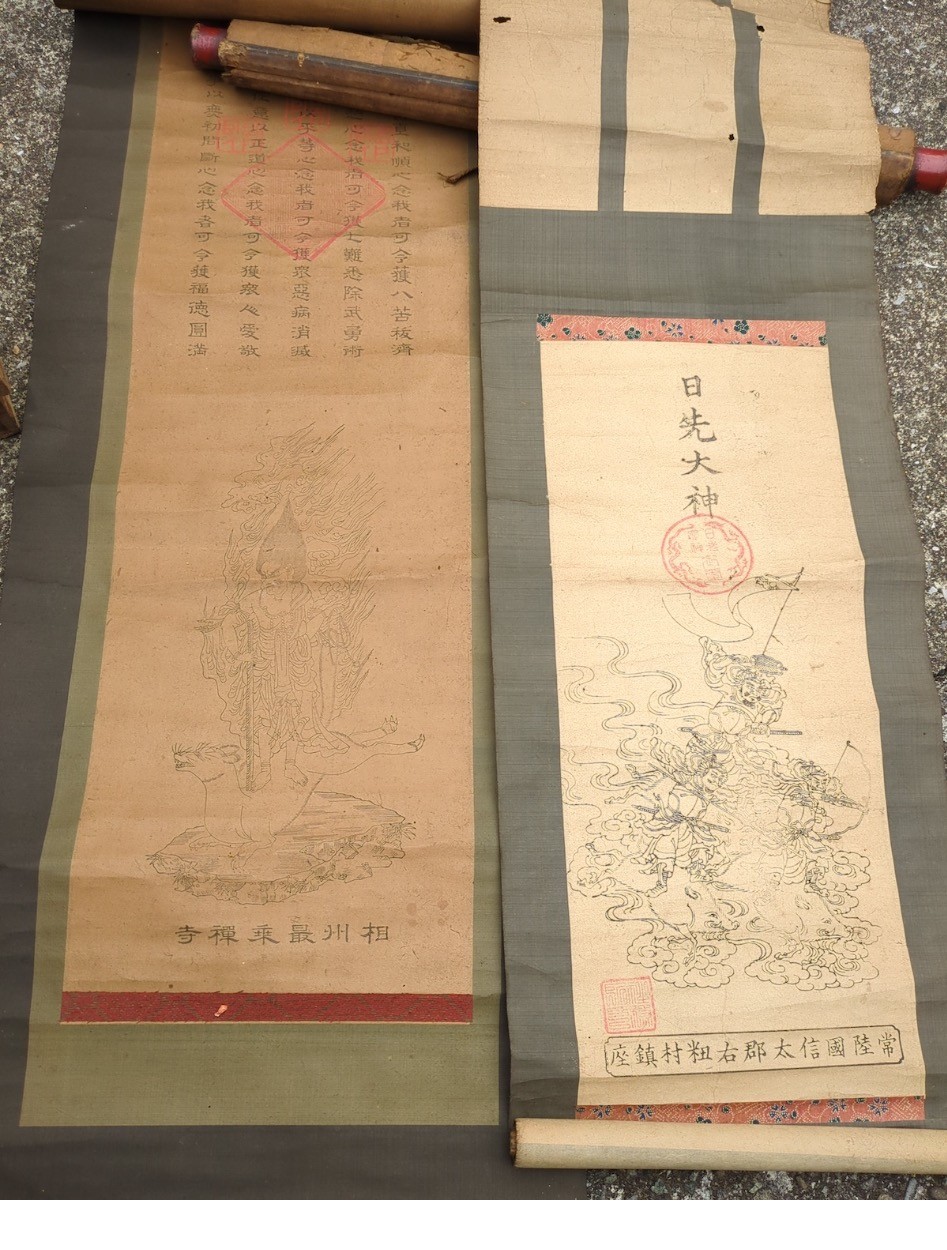 和順心念我者可令獲八苦拔濟
心念我者可令獲七難悉除武勇術
平等心念我者可令獲衆惡病消滅
以正道心念我者可令獲衆人愛敬
間斷心念我者可令獲福德圓満
相州最乘禪寺
日先大神
常陸國信太郡右籾村鎮座